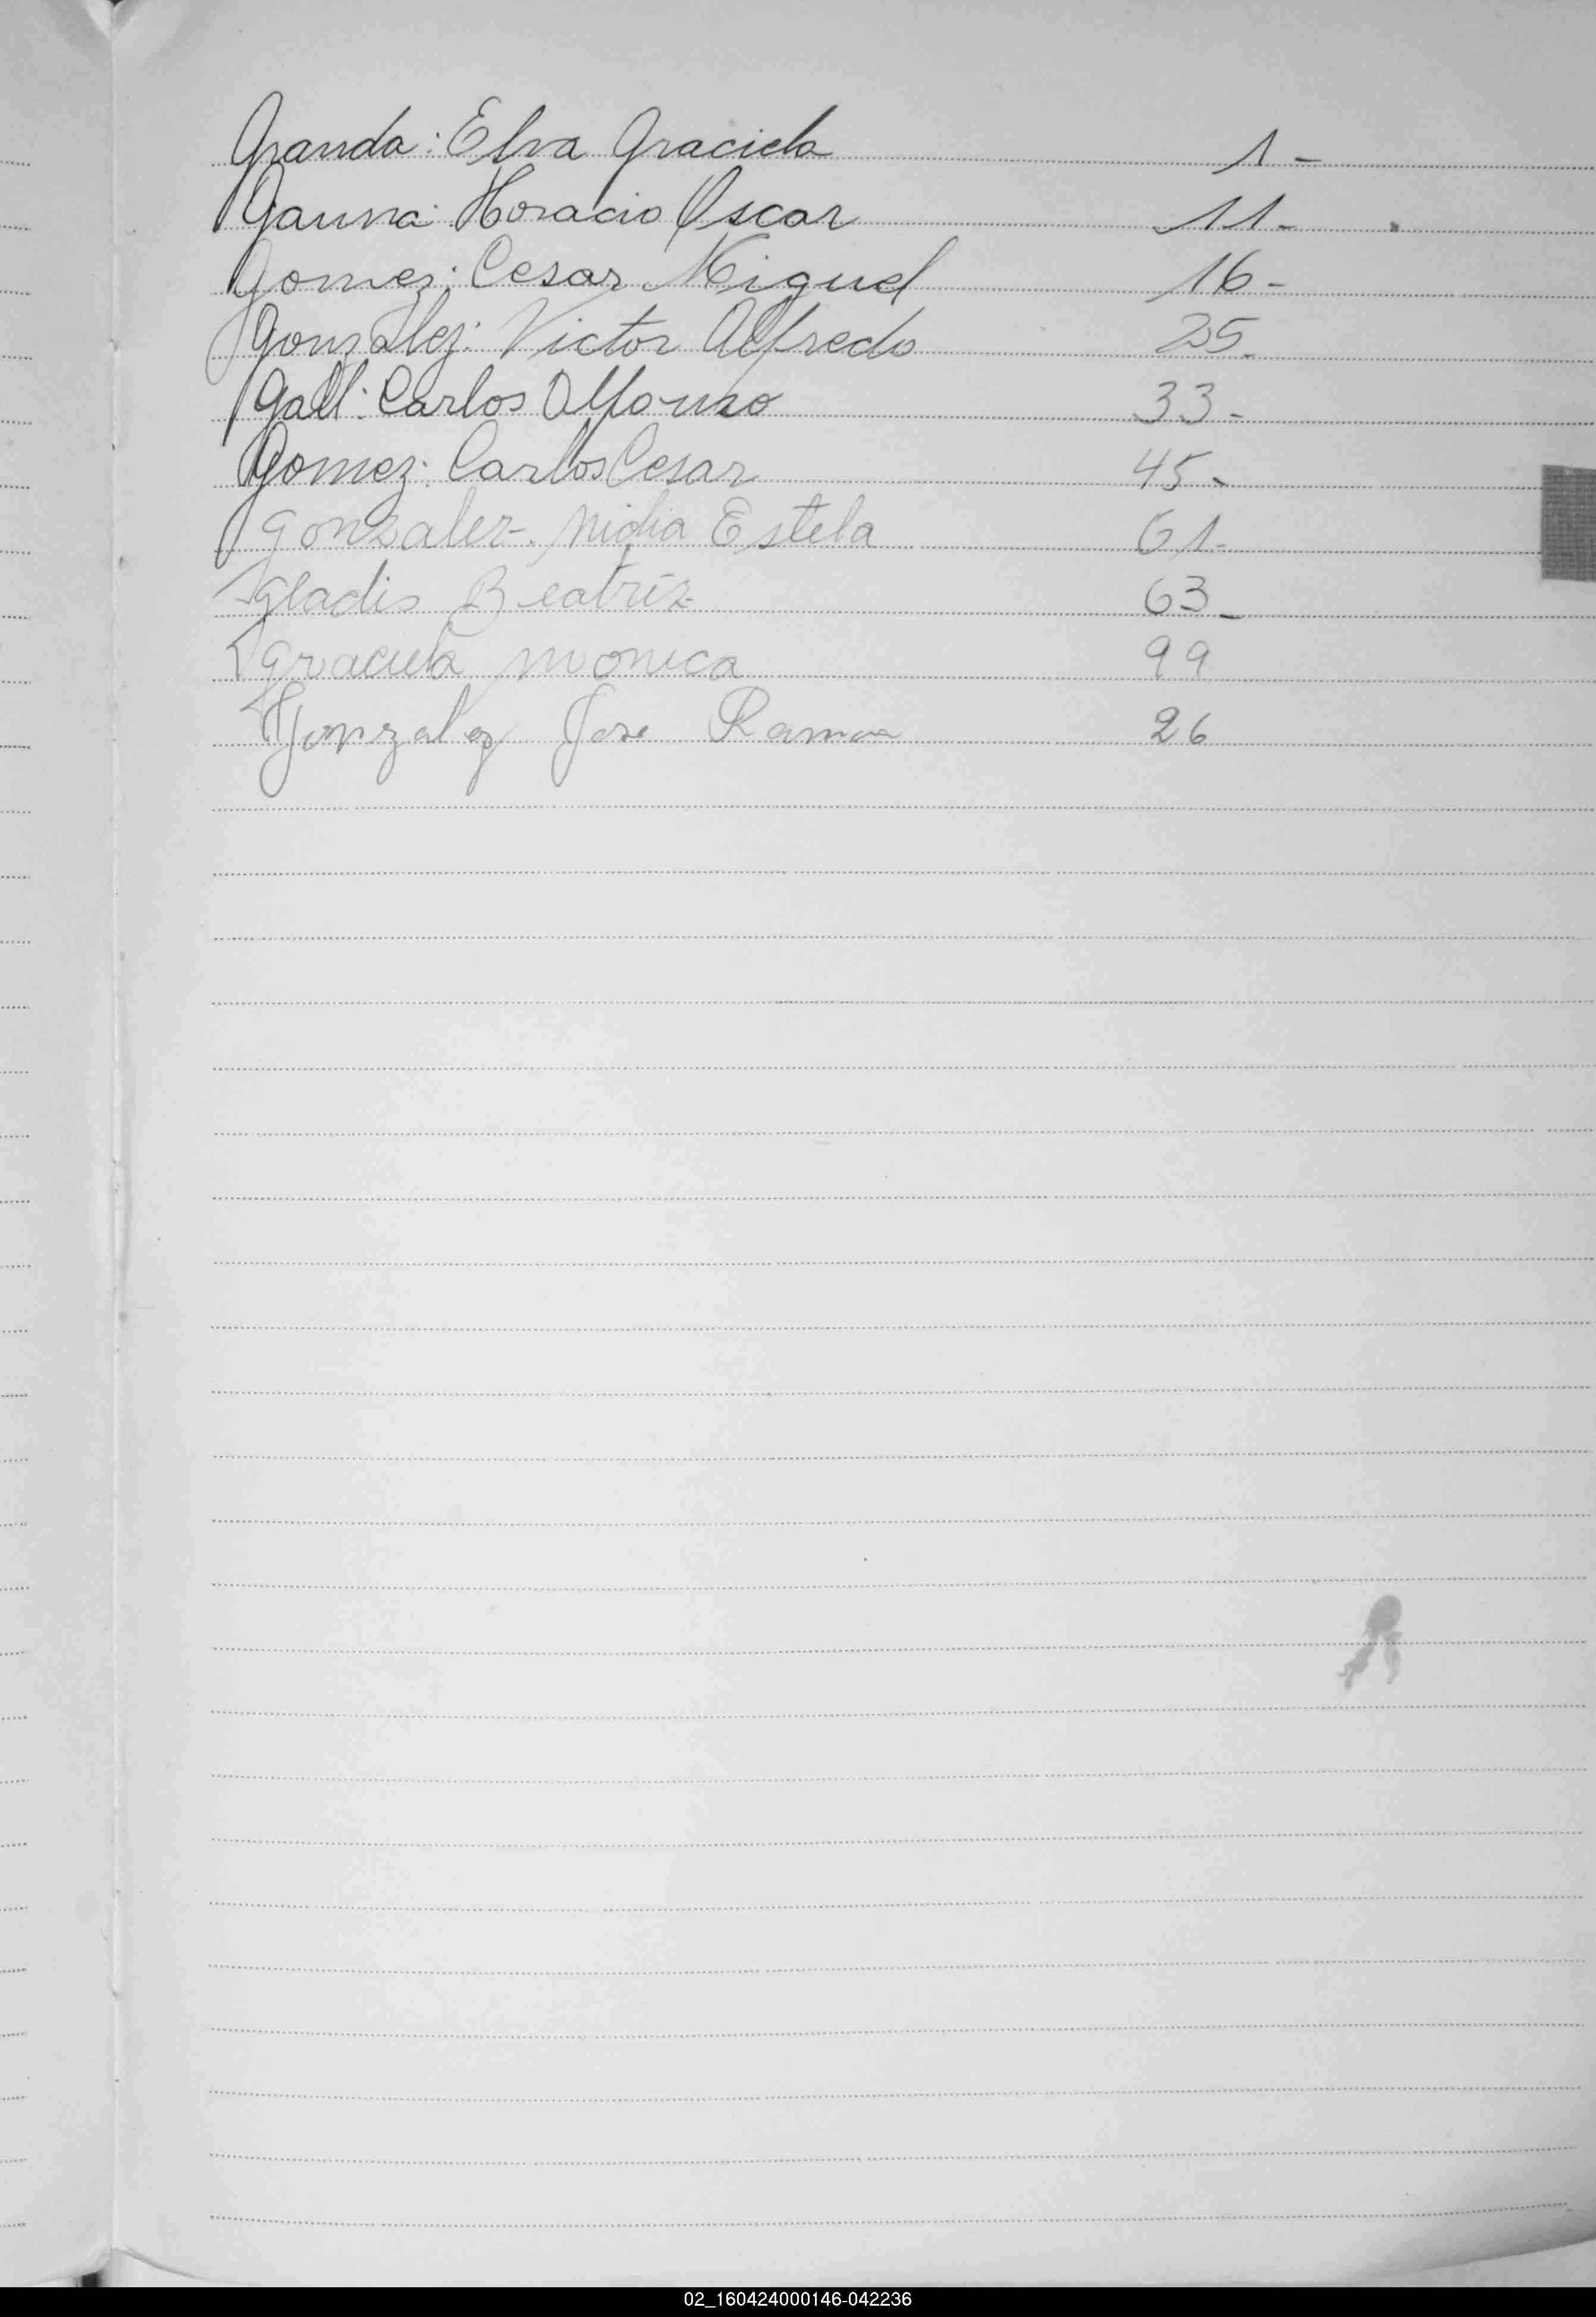 Granda: Elva Graciela 1-
Gauna: Horacio Oscar 11-
Gomez: Cesar Miguel 16-
González: Victor Alfredo 25-
Gall: Carlos Alfonso 33-
Gomez: Carlos Cesar 45-
Gonzalez-. Nidia Estela 61-
Gladis Beatríz 63-
Graciela Monica 99
Gonzalez Jose Ramon 26
02_160424000146-042236